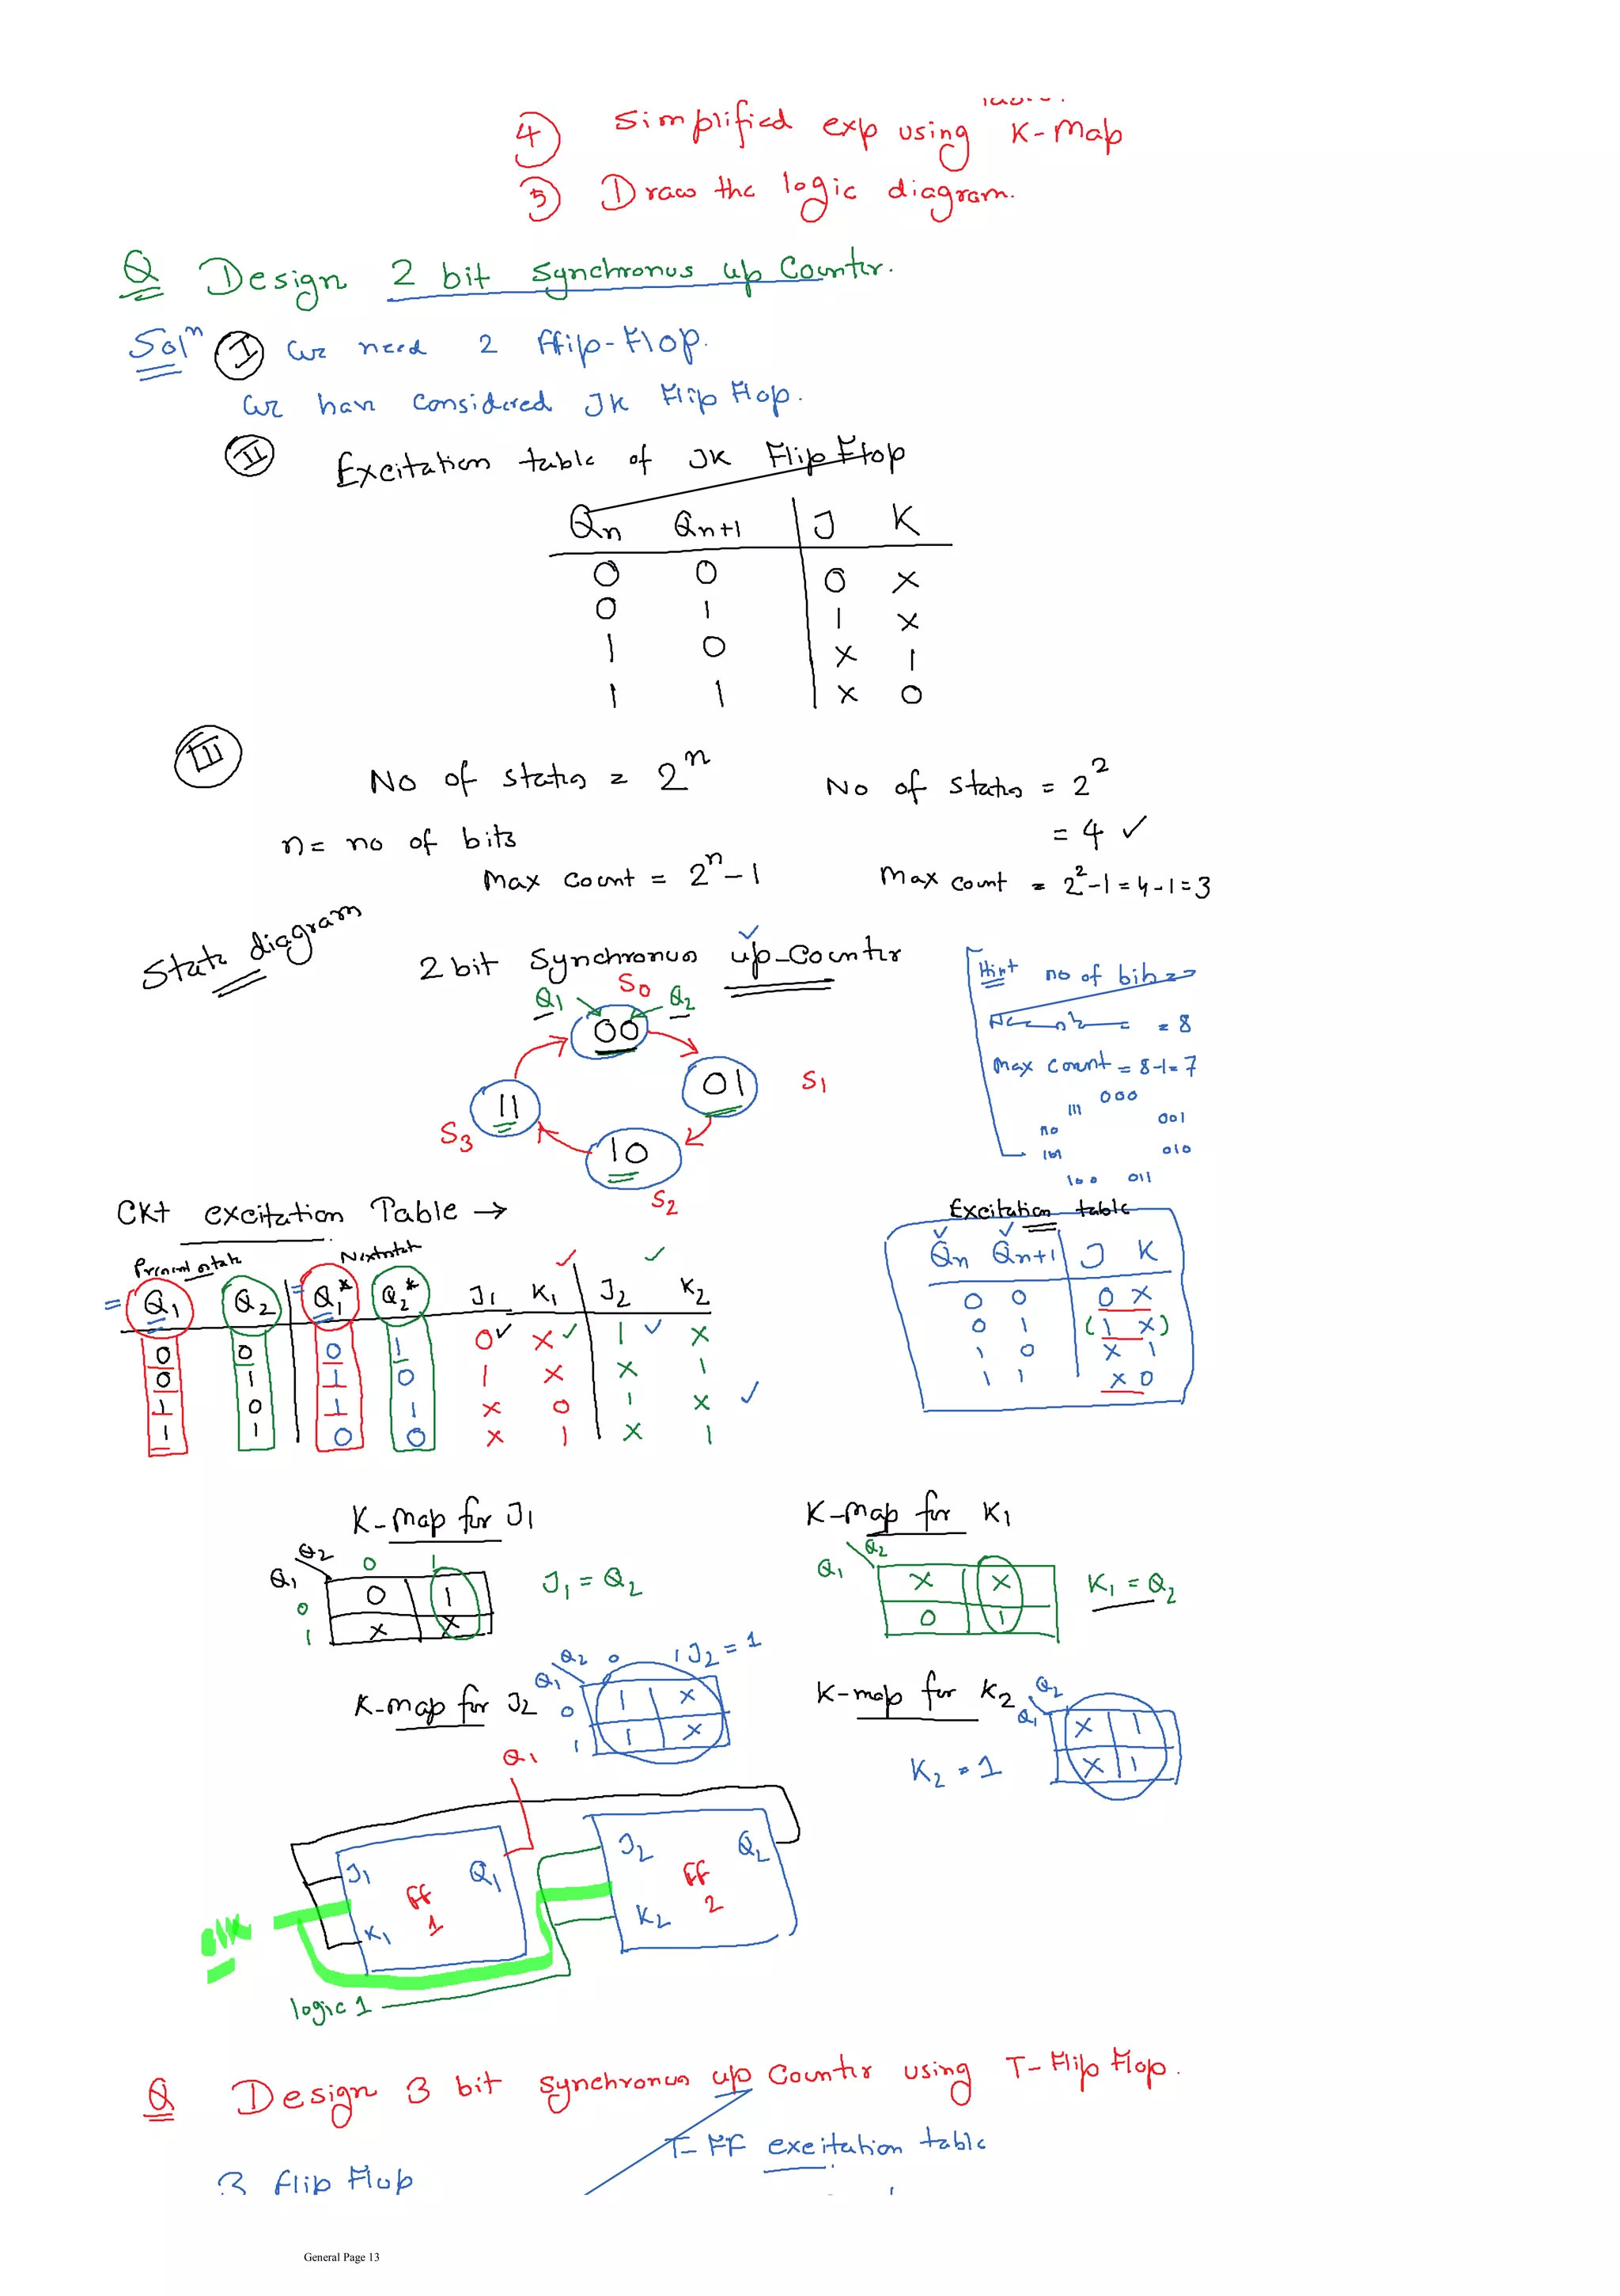 ④ Simplified exp using K-Map
⑤ Draw the logic diagram.
Q Design 2 bit Synchronus up Counter.
Solⁿ Ⅰ we need 2 flip-Flop.
we have considered JK Flip Flop.
Ⅱ Excitation table of JK Flip Flop
Qn Qn+1 J K
0 0 0 X
0 1 1 X
1 0 X 1
1 1 X 0
Ⅲ
No of states = 2ⁿ No of states = 2²
n = no of bits = 4 ✓
Max Count = 2ⁿ - 1 Max count = 2²-1 = 4-1 = 3
State diagram
2 bit Synchronus up-Counter
Q1 S0 Q2
00
01 S1
11
S3
10
S2
Hint no of bits
= 8
Max Count = 8-1 = 7
000
111 001
110
101 010
100 011
Ckt excitation Table →
Present state Next state
Q1 Q2 Q1* Q2* J1 K1 J2 K2
0 0 0 1 0 ✓ X ✓ 1 ✓ X
0 1 1 0 1 X X 1
1 0 1 1 X 0 1 X ✓
1 1 0 0 X 1 X 1
Excitation table
Qn Qn+1 J K
0 0 0 X
0 1 (1 X)
1 0 X 1
1 1 X 0
K-Map for J1
Q2 0 1
Q1
0 0 1
1 X X
J1 = Q2
K-Map for K1
Q2
Q1
X X
0 1
K1 = Q2
K-map for J2
Q2 0 1
Q1
0 1 X
1 1 X
J2 = 1
K-map for K2
Q2
Q1
X 1
X 1
K2 = 1
Q1
J1 Q1
FF
1
K1
J2 Q2
FF
2
K2
clk
logic 1
Q Design 3 bit Synchronus up Counter using T-Flip Flop.
T-FF excitation table
3 flip Flop
General Page 13